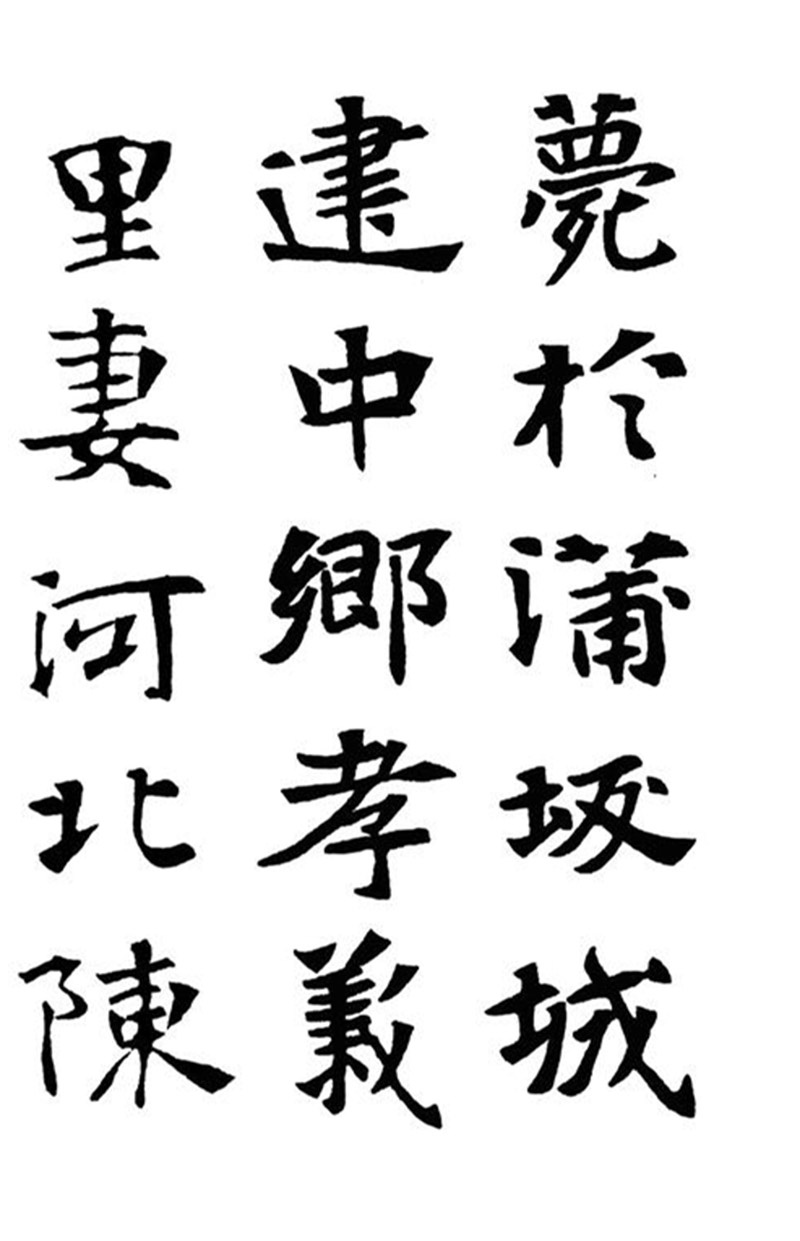 薨於蒲坂城
建中鄉孝義
里妻河北陳